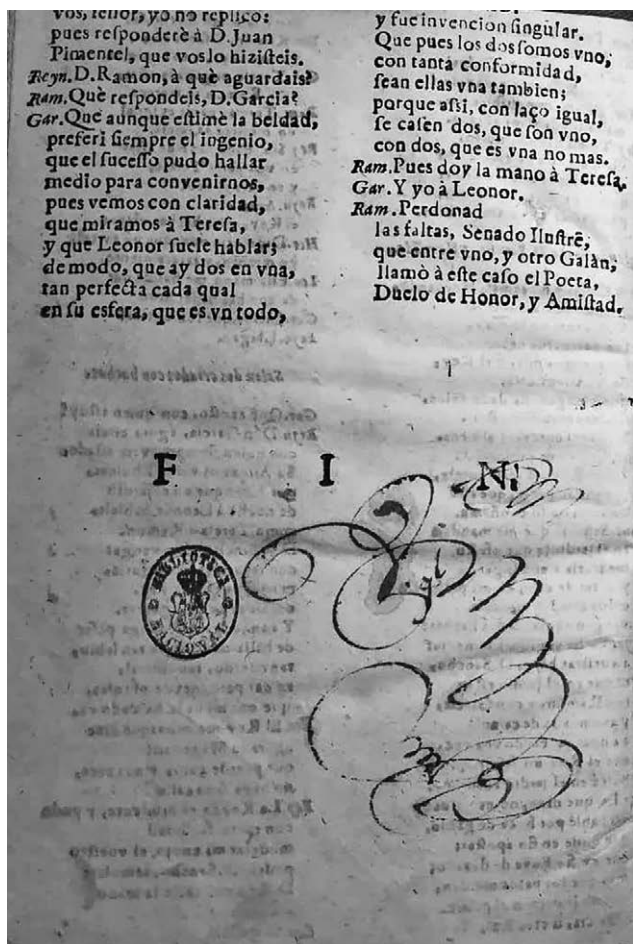 vos, señor, yo no replico:
pues responderè à D. Juan
Pimentel, que vos lo hizisteis.
Reyn. D. Ramon, à què aguardais?
Ram. Què respondeis, D. Garcia?
Gar. Que aunque estimè la beldad,
preferi siempre el ingenio,
que el sucesso pudo hallar
medio para convenirnos,
pues vemos con claridad,
que miramos à Teresa,
y que Leonor suele hablar;
de modo, que ay dos en vna,
tan perfecta cada qual
en su esfera, que es vn todo,
y fue invencion singular.
Que pues los dos somos vno,
con tanta conformidad,
sean ellas vna tambien;
porque assi, con laço igual,
se casen dos, que son vno,
con dos, que es vna no mas.
Ram. Pues doy la mano à Teresa.
Gar. Y yo à Leonor.
Ram. Perdonad
las faltas, Senado Ilustrè;
que entre vno, y otro Galàn,
llamò à este caso el Poeta,
Duelo de Honor, y Amistad.
F I N.
BIBLIOTECA NACIONAL